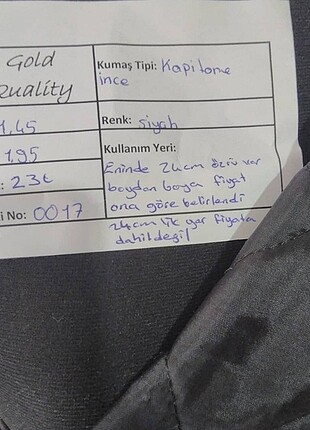 Gold
Quality
Kumaş Tipi: Kapitone
ince
1,45
Renk: siyah
1.95
Kullanım Yeri:
: 23₺
Eninde 24cm özrü var
boydan boya fiyat
No: 0017
ona göre belirlendi
24cm lik yer fiyata
dahil değil